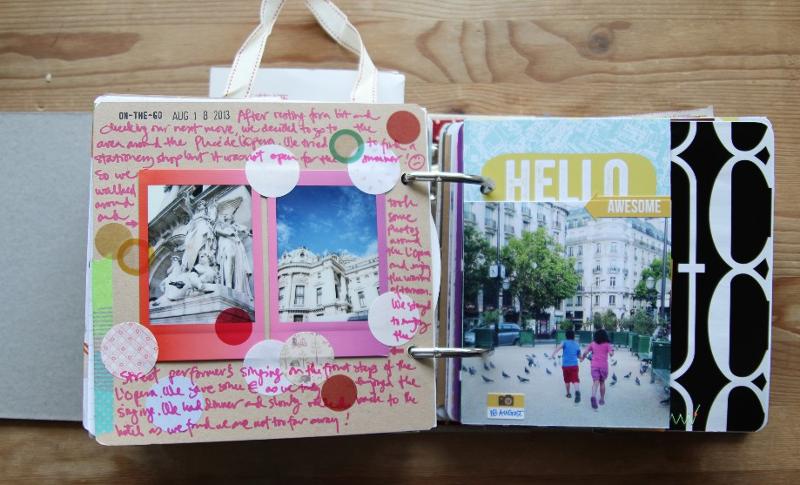 ON-THE-GO AUG 18 2013 After resting for a bit and
checking our next move, we decided to go to the
area around the Place de l'Opera. We tried to find a
stationery shop but it was not open for the summer!
so we
walked
around
and
took
some
photos
around
the L'Opera
and enjoy
the
warm
afternoon.
We stayed
to enjoy
the
Street performers singing on the front steps of the
L'Opera. We gave some € as we enjoyed the
singing. We had dinner and slowly walked back to the
hotel as we found we are not too far away!
HELLO
AWESOME
18 AUGUST